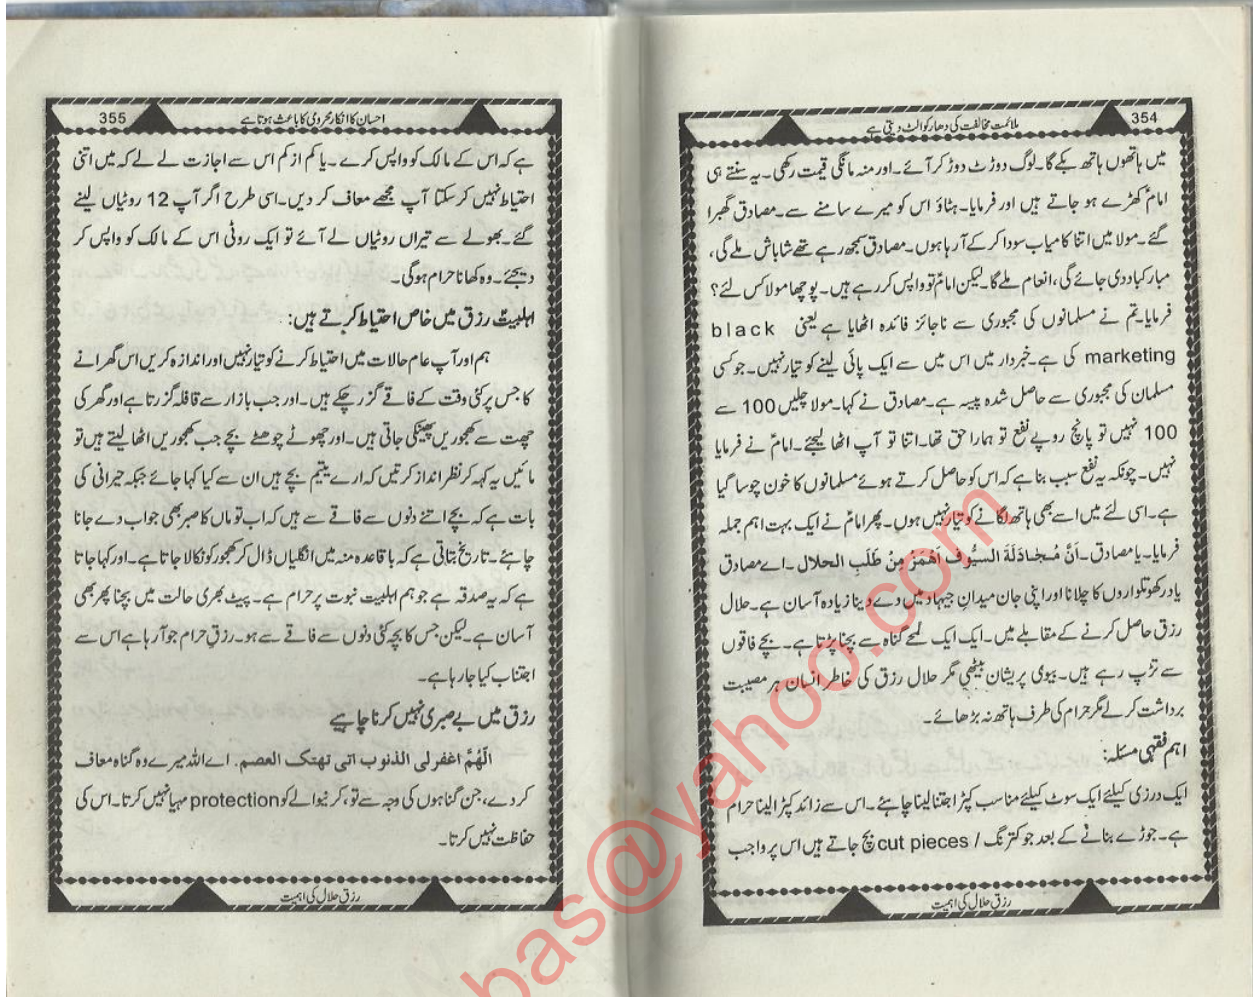 354
ملائمت مخالفت کی دھار کو الٹ دیتی ہے
میں ہاتھوں ہاتھ بکے گا۔ لوگ دوڑٹ دوڑ کر آئے۔ اور منہ مانگی قیمت رکھی۔ یہ سنتے ہی
امامؑ کھڑے ہو جاتے ہیں اور فرمایا۔ ہٹاؤ اس کو میرے سامنے سے۔ مصادق گھبرا
گئے۔ مولا میں اتنا کامیاب سودا کر کے آ رہا ہوں۔ مصادق سمجھ رہے تھے شاباش ملے گی،
مبارکباد دی جائے گی، انعام ملے گا۔ لیکن امامؑ تو واپس کر رہے ہیں۔ پوچھا مولا کس لئے؟
فرمایا۔ تم نے مسلمانوں کی مجبوری سے ناجائز فائدہ اٹھایا ہے یعنی black
marketing کی ہے۔ خبردار میں اس میں سے ایک پائی لینے کو تیار نہیں۔ جو کسی
مسلمان کی مجبوری سے حاصل شدہ پیسہ ہے۔ مصادق نے کہا۔ مولا چلیں 100 سے
100 نہیں تو پانچ روپے نفع تو ہمارا حق تھا۔ اتنا تو آپ اٹھا لیجئے۔ امامؑ نے فرمایا
نہیں۔ چونکہ یہ نفع سبب بنا ہے کہ اس کو حاصل کرتے ہوئے مسلمانوں کا خون چوسا گیا
ہے۔ اسی لئے میں اسے بھی ہاتھ لگانے کو تیار نہیں ہوں۔ پھر امامؑ نے ایک بہت اہم جملہ
فرمایا۔ یا مصادق۔ اَنَّ مُجَادَلَةَ السیُّوف اَهْمَزُ مِنْ طَلَبِ الحلال۔ اے مصادق
یاد رکھو تلواروں کا چلانا اور اپنی جان میدانِ جیہاد میں دے دینا زیادہ آسان ہے۔ حلال
رزق حاصل کرنے کے مقابلے میں۔ ایک ایک لمحے گناہ سے بچنا پڑتا ہے۔ بچے فاقوں
سے تڑپ رہے ہیں۔ بیوی پریشان بیٹھی مگر حلال رزق کی خاطر انسان ہر مصیبت
برداشت کر لے مگر حرام کی طرف ہاتھ نہ بڑھائے۔
اہم فقہی مسئلہ:
ایک درزی کیلئے ایک سوٹ کیلئے مناسب کپڑا جتنا لینا چاہئے۔ اس سے زائد کپڑا لینا حرام
ہے۔ جوڑے بنانے کے بعد جو کترنگ / cut pieces بچ جاتے ہیں اس پر واجب
رزق حلال کی اہمیت
355
احسان کا انکار محرومی کا باعث ہوتا ہے
ہے کہ اس کے مالک کو واپس کرے۔ یا کم از کم اس سے اجازت لے لے کہ میں اتنی
احتیاط نہیں کر سکتا آپ مجھے معاف کر دیں۔ اسی طرح اگر آپ 12 روٹیاں لینے
گئے۔ بھولے سے تیراں روٹیاں لے آئے تو ایک روٹی اس کے مالک کو واپس کر
دیجئے۔ وہ کھانا حرام ہو گی۔
اہلبیتؑ رزق میں خاص احتیاط کرتے ہیں:
ہم اور آپ عام حالات میں احتیاط کرنے کو تیار نہیں اور اندازہ کریں اس گھرانے
کا جس پر کئی وقت کے فاقے گزر چکے ہیں۔ اور جب بازار سے قافلہ گزرتا ہے اور گھر کی
چھت سے کھجوریں پھینکی جاتی ہیں۔ اور چھوٹے چوھٹے بچے جب کھجوریں اٹھا لیتے ہیں تو
مائیں یہ کہہ کر نظر انداز کرتیں کہ ارے یتیم بچے ہیں ان سے کیا کہا جائے جبکہ حیرانی کی
بات ہے کہ بچے اتنے دنوں سے فاقے سے ہیں کہ اب تو ماں کا صبر بھی جواب دے جانا
چاہئے۔ تاریخ بتاتی ہے کہ باقاعدہ منہ میں انگلیاں ڈال کر کھجور کو نکالا جاتا ہے۔ اور کہا جاتا
ہے کہ یہ صدقہ ہے جو ہم اہلبیت نبوت پر حرام ہے۔ پیٹ بھری حالت میں بچنا پھر بھی
آسان ہے۔ لیکن جس کا بچہ کئی دنوں سے فاقے سے ہو۔ رزقِ حرام جو آ رہا ہے اس سے
اجتناب کیا جا رہا ہے۔
رزق میں بے صبری نہیں کرنا چاہیے
الّهُمَّ اغفرلی الذنوب اتی تهتک العصم. اے اللہ میرے وہ گناہ معاف
کر دے، جن گناہوں کی وجہ سے تو، کرنیوالے کو protection مہیا نہیں کرتا۔ اس کی
حفاظت نہیں کرتا۔
رزق حلال کی اہمیت
bas@yahoo.com